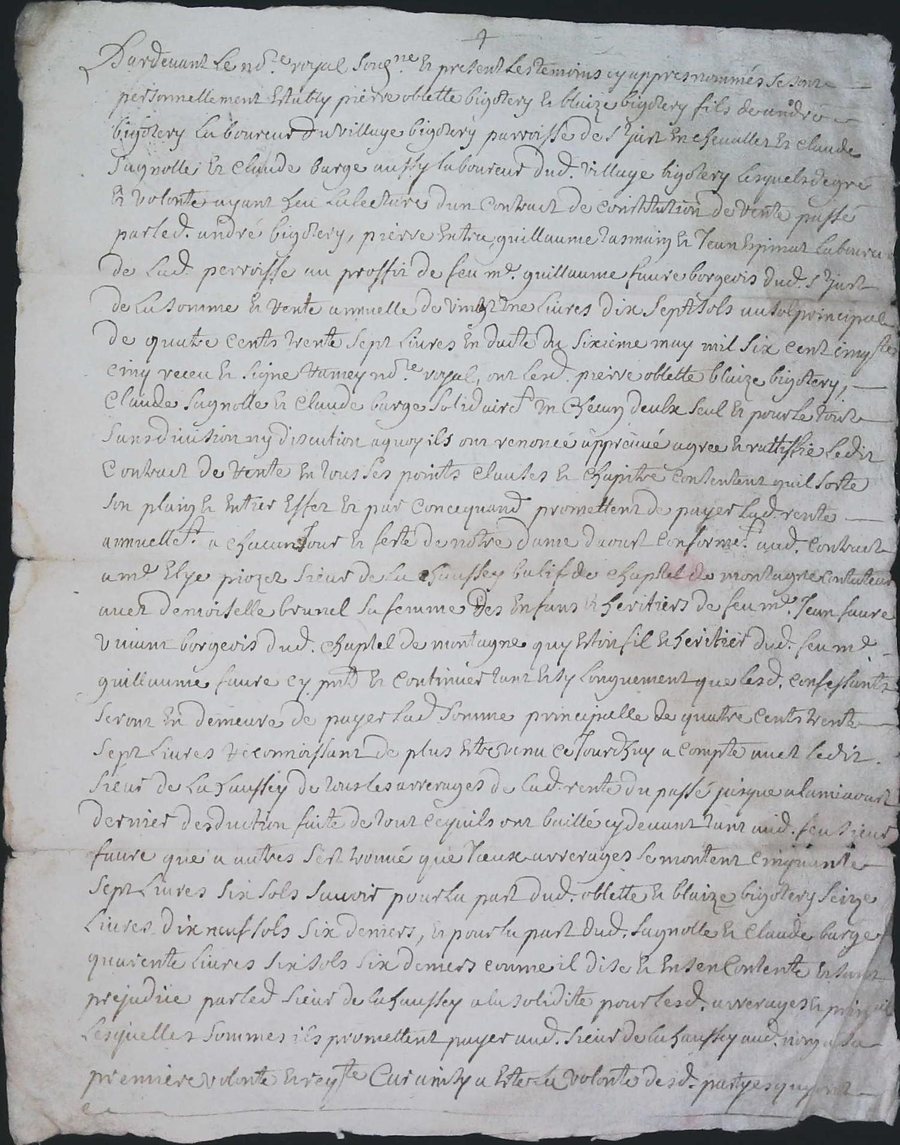 4
Pardevant le no.re royal soug.né et present les temoins cy appres nommés se sont
personnellement establÿ pierre oblette bigotery et blaize bigotery fils de andré
bigotery laboureur du village bigotery parroisse de s.t just en chevallet et claude
Sagnolle et Claude barge aussy laboureur dud. village bigotery lesquels de gré
et volonte ayant heu la lecture dun contract de constitution de vente passé
par led. andré bigotery, pierre guillaume et Jean Epinat laboureur
de lad. perroisse au proffit de feu m.e guillaume faure borgeois dud. s.t just
de la somme et rente annuelle de vingt une livres dix sept sols au sol principal
de quatre cents trente sept livres en datte du sixieme may mil six cent
cinq receu et signe no.re royal, ont lesd. pierre oblette blaize bigotery,
Claude Sagnolle et Claude barge solidairem.t un chacun deulx seul et pour le tout
sans division ny discution a quoy ils ont renoncé appreuué agree et rattiffie ledit
contract de vente en tous ses points clauses et chapitre consentent quil sorte
son plain et entier effet et par concequand promettent de payer lad. rente
annuelle.t a chacun jour et feste de notre dame daoust conforme.t aud. contract
a m.e Elye piozet sieur de la chaussey balif de chaptel de montagne
avec demoiselle brunel sa femme des enfans et heritiers de feu m.e Jean faure
vivant borgeois dud. chaptel de montagne quy estoit fil et heritier dud. feu m.e
guillaume faure cy pnt et continuer tant et sy longuement que lesd. confessants
seront en demeure de payer lad. somme principalle de quatre cents trente
sept livres reconnoissant de plus estre venu ce jourdhuy a compte avec ledit
sieur de la chaussey de tous les arrerages de lad. rente du passé jusque a la miaoust
dernier desduction faite de tout ce quils ont baillé cy devant tant aud. feu sieur
faure que a autres sest trouué que iceux arrerages se montent cinquante
sept livres six sols sauoir pour la part dud. oblette et blaize bigotery seize
livres dix neuf sols six deniers, et pour la part dud. Sagnolle et Claude barge
quarente livres six sols six deniers comme il dise et en sen contente et sans
prejudice par led. sieur de la chaussey a la solidité pour lesd. arrerages et principal
lesquelles sommes ils promettent payer aud. sieur de la chaussey aud. nom a sa
premiere volonte et reqte Car ainsy a este la volonte desd. partyes quy ont